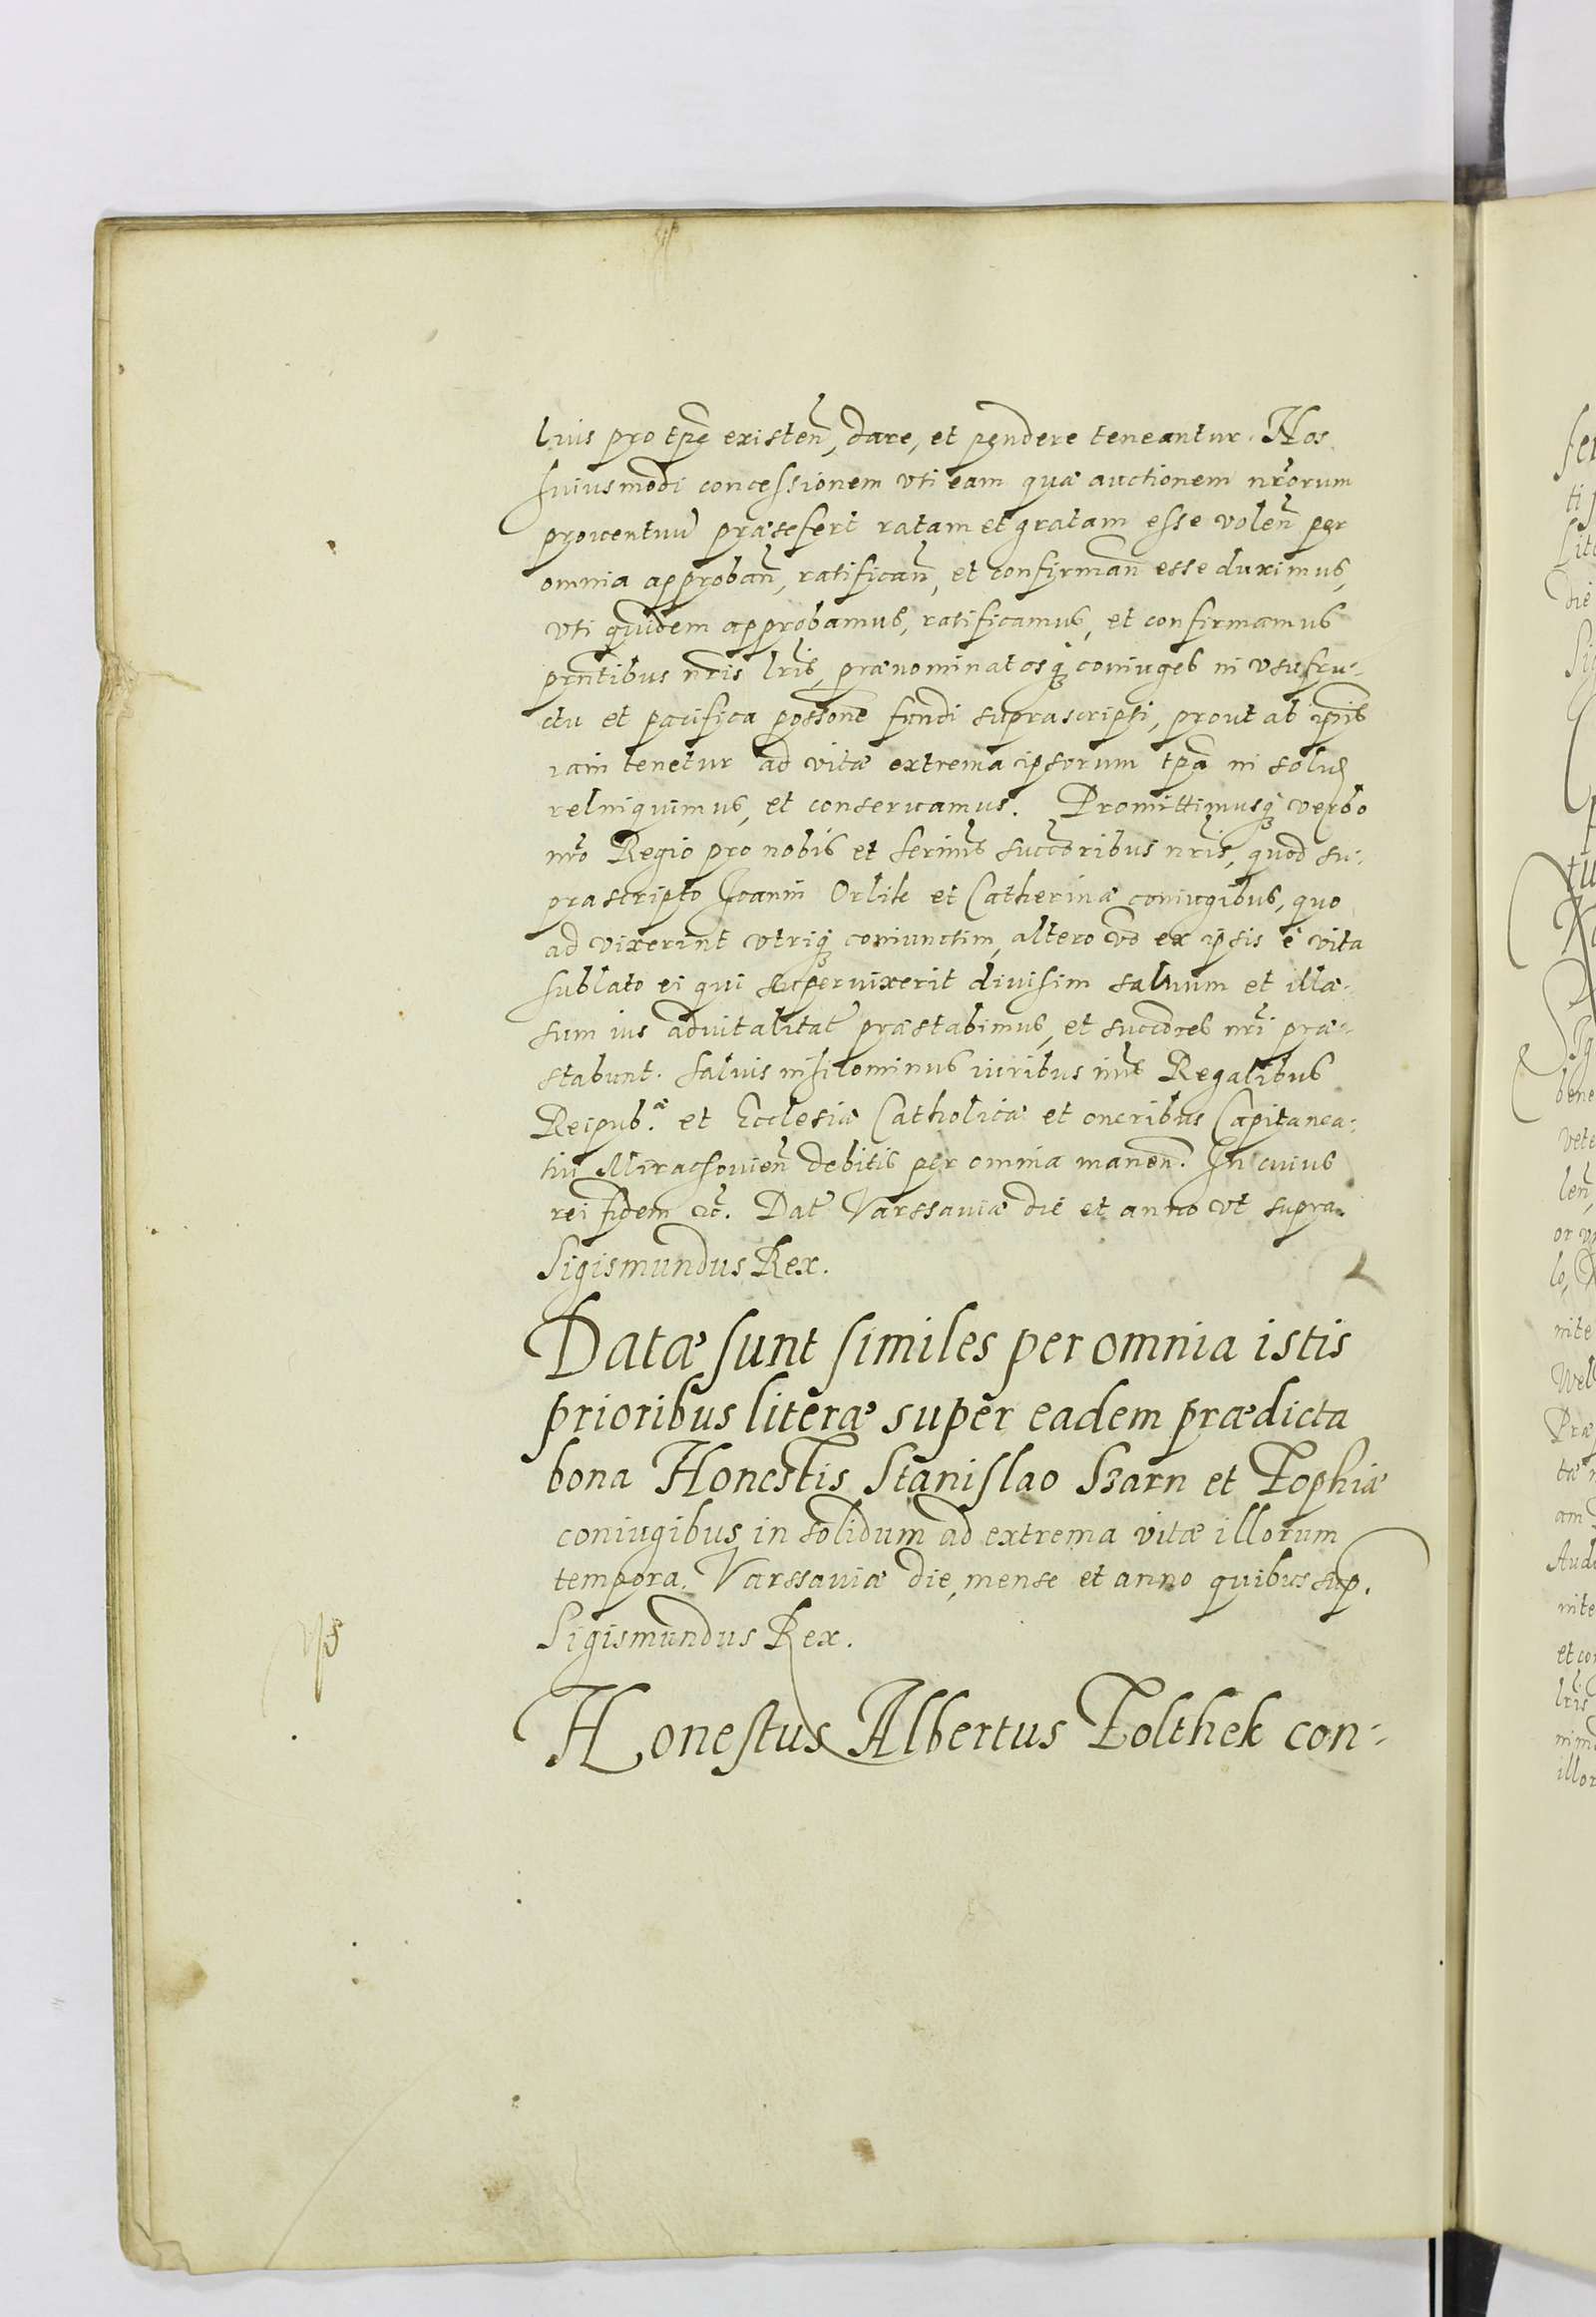 lius pro tp̃e existeñ, dare, et pendere teneantur. Nos
huiusmodi concessionem vti eam quæ auctionem nr̃orum
prouentuũ præsefert ratam et gratam esse voleñ per
omnia approbañ, ratificañ, et confirmañ esse duximus,
vti quidem approbamus, ratificamus, et confirmamus
pñtibus nr̃is lr̃is, prænominatosq; coniuges in vsufru-
ctu et pacifica possone fundi suprascripti, prout ab ip̃is
iam tenetur ad vitæ extrema ipsorum tp̃a in solid
relinquimus, et conseruamus. Promittimusq; verbo
nr̃o Regio pro nobis et serimis succoribus nr̃is, quod su-
prascripto Joanni Orlik et Catherinæ coniugibus, quo
ad vixerint vtriq; coniunctim, altero vo ex ipsis è vita
sublato ei qui superuixerit diuisim saluum et illæ-
sum ius aduitalitat præstabimus, et succores nr̃i præ-
stabunt. Saluis nihilominus iuribus nr̃is Regalibus
Reipub.æ et Ecclesiæ Catholicæ et oneribus Capitanea-
tui debitis per omnia maneñ. In cuius
rei fidem &c. Dat Varssauiæ die et anno vt supra.
Sigismundus Rex.
Datæ sunt similes per omnia istis
prioribus literæ super eadem prædicta
bona Honestis Stanislao Szarn et Zophiæ
coniugibus in solidum ad extrema vitæ illorum
tempora. Varssauiæ die, mense et anno quibus sup.
Sigismundus Rex.
Honestus Albertus Zolthek con-